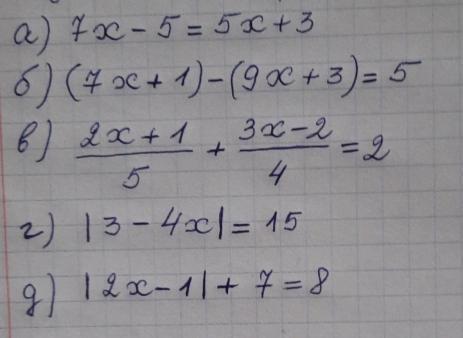 а) 7x - 5 = 5x + 3
б) (7x + 1) - (9x + 3) = 5
в) \frac{2x + 1}{5} + \frac{3x - 2}{4} = 2
г) |3 - 4x| = 15
д) |2x - 1| + 7 = 8